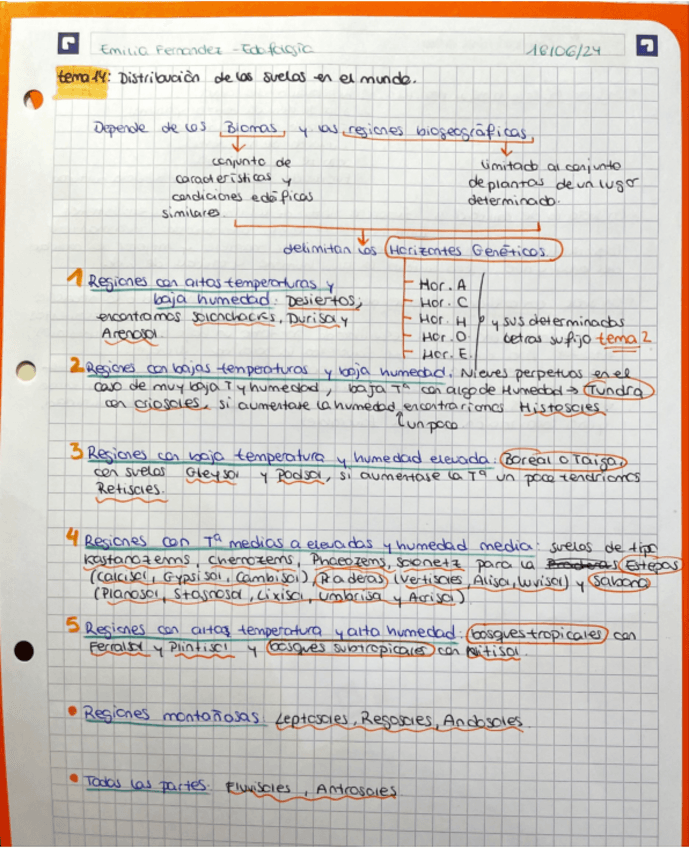 Emilia Fernandez - Edafología 18/06/24
tema 14: Distribución de los suelos en el mundo.
Depende de los Biomas y las regiones biogeográficas,
conjunto de
características y
condiciones edáficas
similares.
limitado al conjunto
de plantas de un lugar
determinado.
delimitan los Horizontes Genéticos
Hor. A
Hor. C
Hor. H
Hor. O
Hor. E
y sus determinadas
letras sufijo tema 2
1 Regiones con altas temperaturas y
baja humedad: Desiertos;
encontramos solonchacks, Durisol y
Arenosol.
2 Regiones con bajas temperaturas y baja humedad. Nieves perpetuas en el
caso de muy baja T y humedad, baja Tª con algo de Humedad → Tundra
con criosoles, si aumentase la humedad encontrarianos Histosoles.
un poco
3 Regiones con baja temperatura y humedad elevada: Boreal o Taiga,
con suelos Gleysol y Podsol, si aumentase la Tª un poco tendriamos
Retisoles.
4 Regiones con Tª medias a elevadas y humedad media: suelos de tipo
Kastanozems, chernozems, Phaeozems, Solonetz para la Praderas Estepas
(Calcisol, Gypsisol, Cambisol), Praderas (Vertisoles, Alisol, Luvisol) y Sabana
(Planosol, Stagnosol, Lixisol, Umbrisol y Acrisol)
5 Regiones con altas temperatura y alta humedad: bosques tropicales con
Ferralsol y Plintisol y bosques subtropicales con Nitisol.
• Regiones montañosas: Leptosoles, Regosoles, Andosoles
• Todas las partes: Fluvisoles, Antrosoles